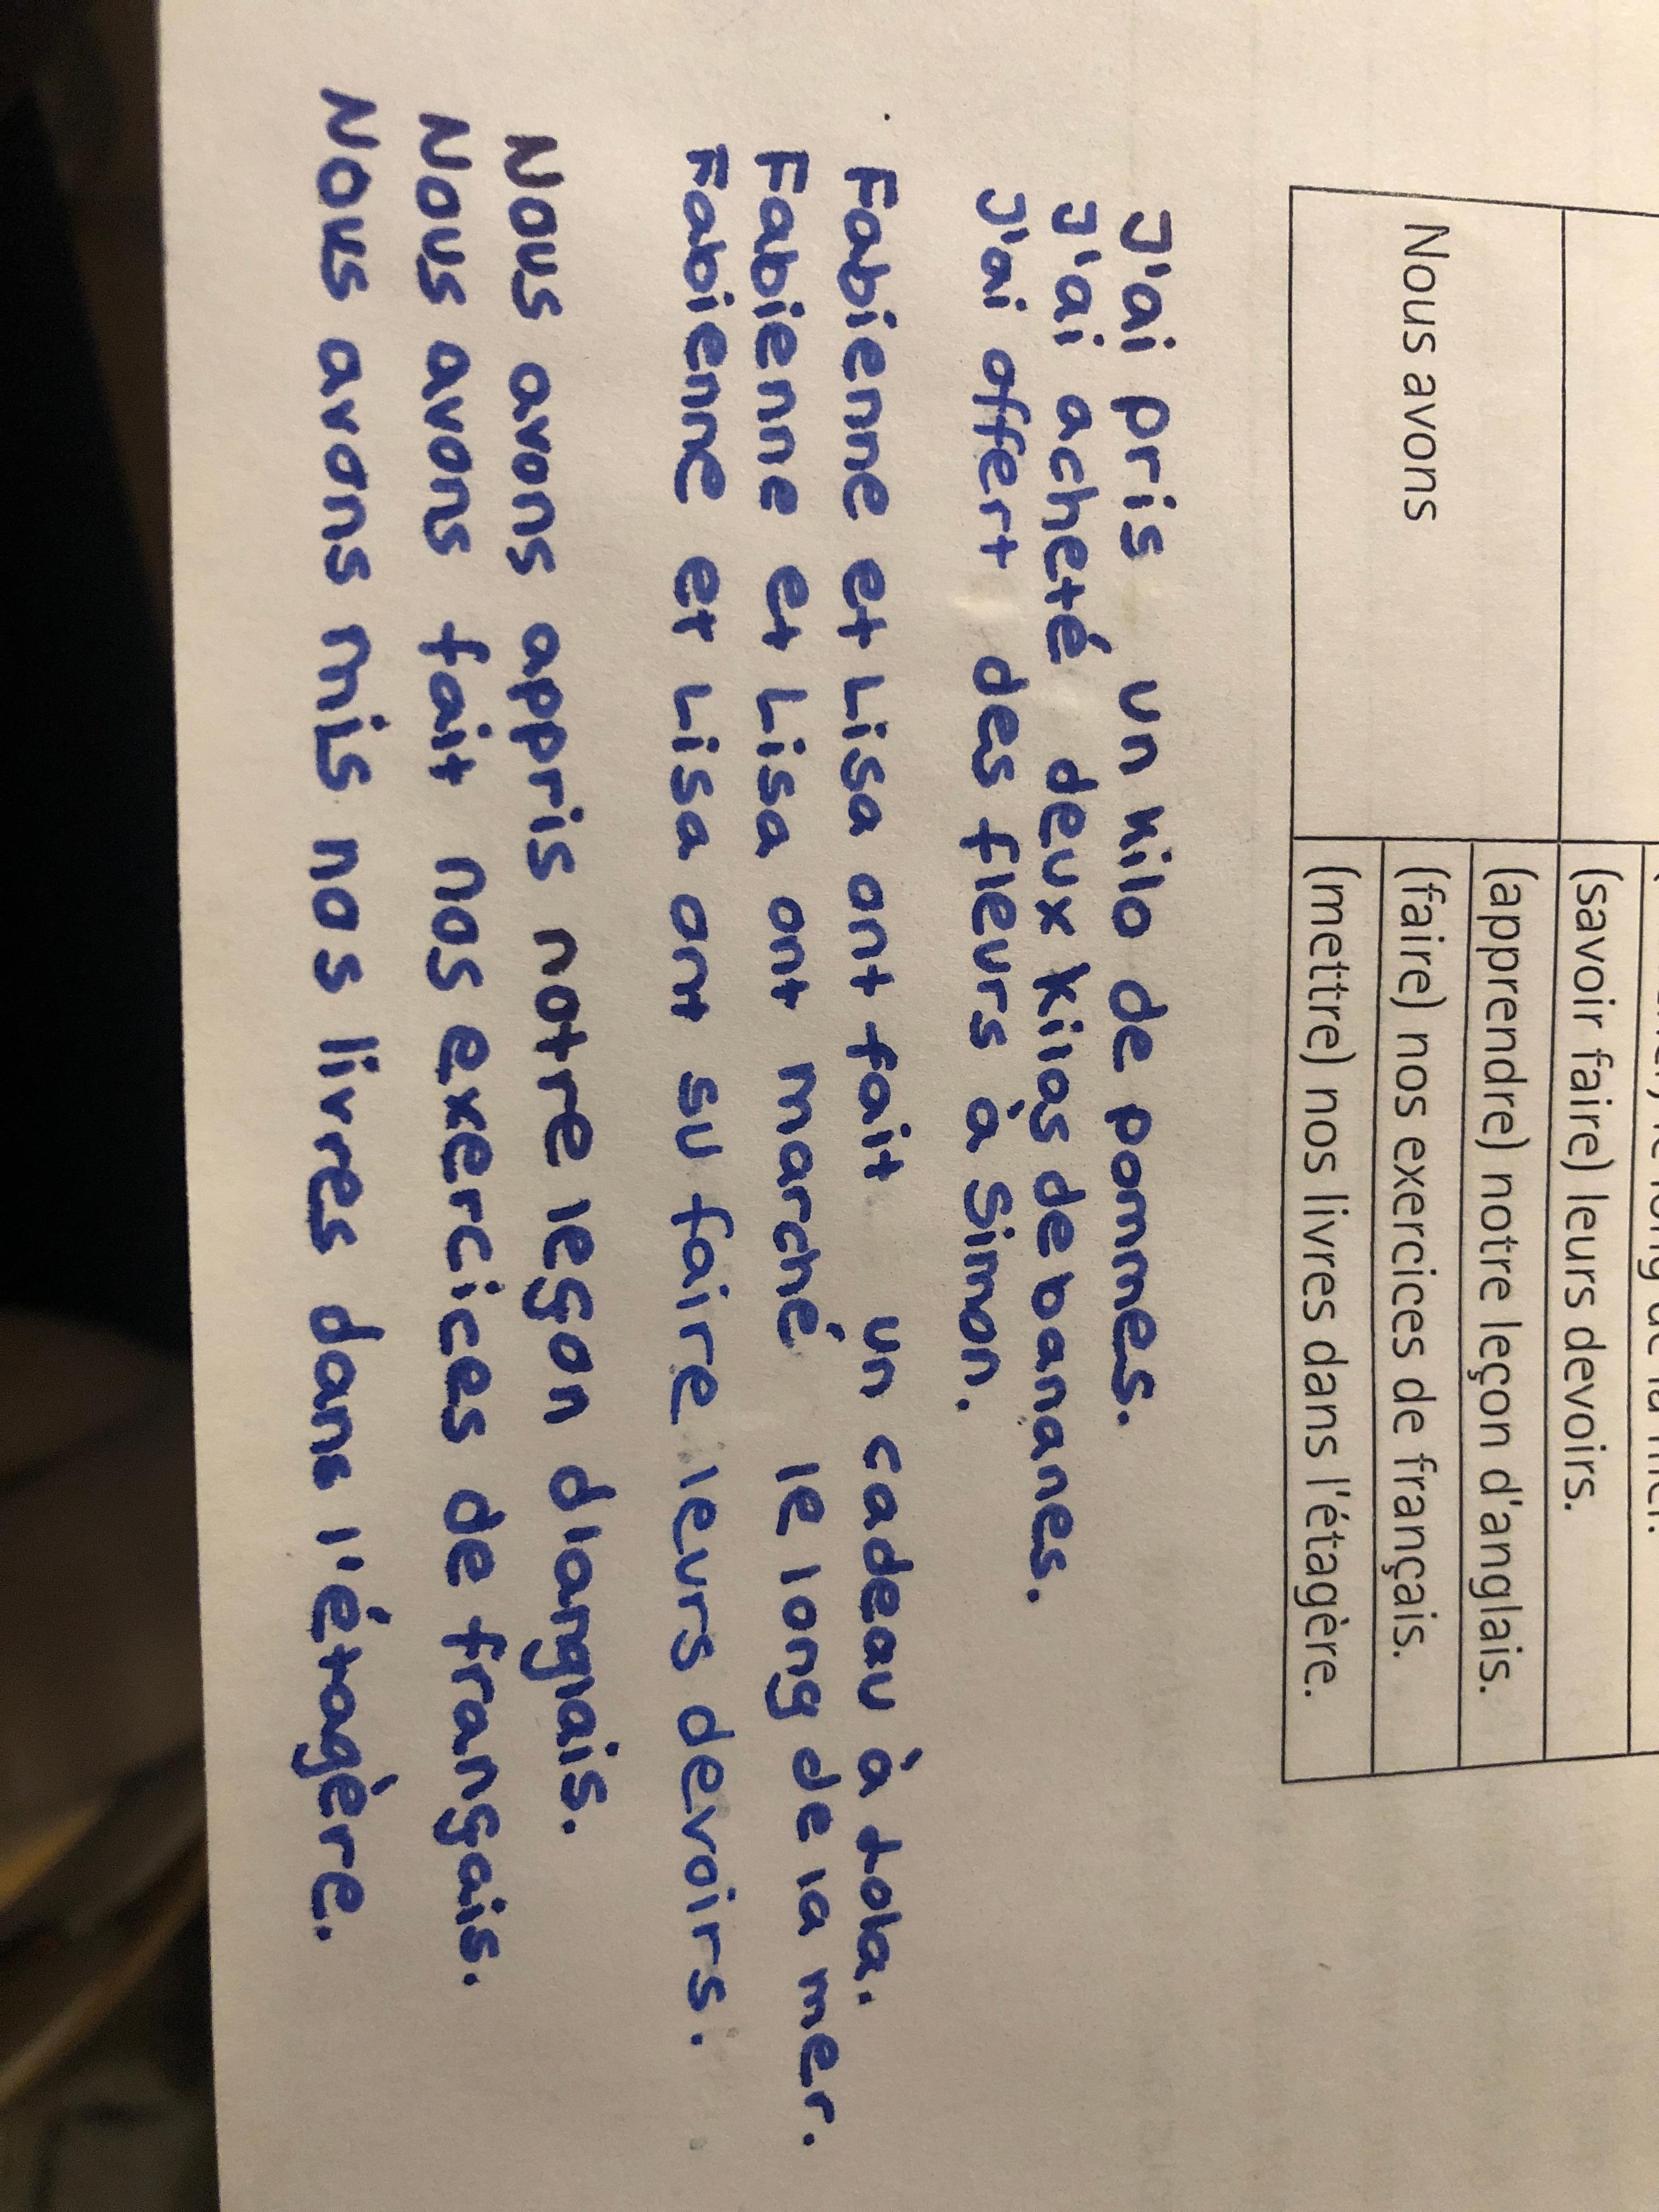 (savoir faire) leurs devoirs.
Nous avons
(apprendre) notre leçon d'anglais.
(faire) nos exercices de français.
(mettre) nos livres dans l'étagère.
J'ai pris un kilo de pommes.
J'ai acheté deux kilos de bananes.
J'ai offert des fleurs à Simon.
Fabienne et Lisa ont fait un cadeau à Lola.
Fabienne et Lisa ont marché le long de la mer.
Fabienne et Lisa ont su faire leurs devoirs.
Nous avons appris notre leçon d'anglais.
Nous avons fait nos exercices de français.
Nous avons mis nos livres dans l'étagère.